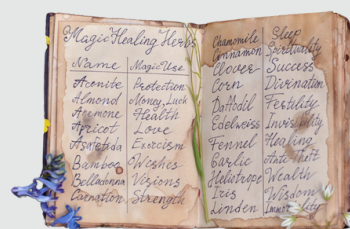 Magic Healing Herbs
Name Magic Use
Aconite Protection
Almond Money, Luck
Anemone Health
Apricot Love
Asafetida Exorcism
Bamboo Wishes
Belladonna Visions
Carnation Strength
Chamomile Sleep
Cinnamon Spirituality
Clover Success
Corn Divination
Daffodil Fertility
Edelweiss Invisibility
Fennel Healing
Garlic Anti Theft
Heliotrope Wealth
Iris Wisdom
Linden Immortality